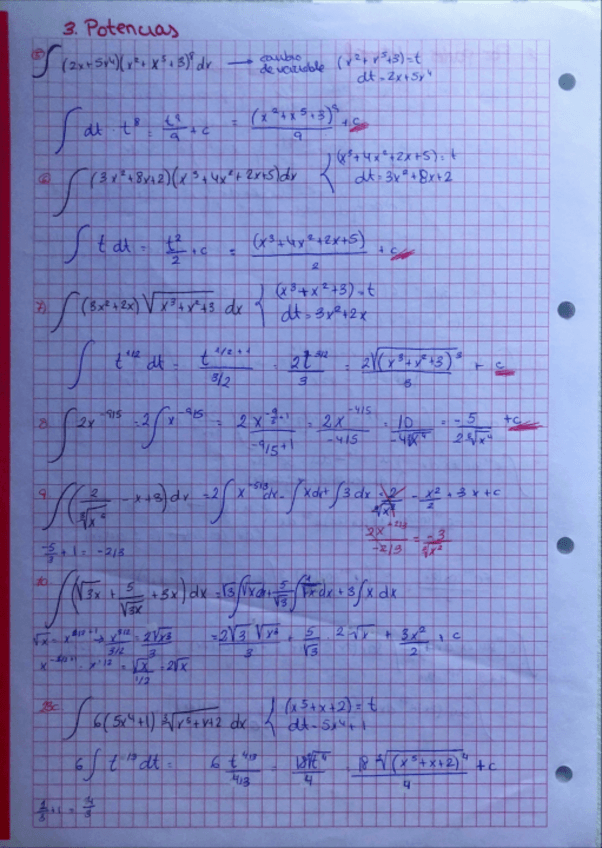 3. Potencias
5) ∫ (2x+5x⁴)(x²+x⁵+3)⁸ dx → cambio de variable (x²+x⁵+3)=t
dt=2x+5x⁴
∫ dt · t⁸ = t⁹/9 + c = (x²+x⁵+3)⁹/9 + c
6) ∫ (3x²+8x+2)(x³+4x²+2x+5)dx { (x³+4x²+2x+5)=t
dt=3x²+8x+2
∫ t dt = t²/2 + c = (x³+4x²+2x+5)/2 + c
7) ∫ (3x²+2x) √(x³+x²+3) dx { (x³+x²+3)=t
dt=3x²+2x
∫ t^(1/2) dt = t^(1/2+1)/(3/2) = 2t^(3/2)/3 = 2√((x³+x²+3)³)/3 + c
8. ∫ 2x^(-9/5) = 2∫ x^(-9/5) = 2x^(-9/5+1)/(-9/5+1) = 2x^(-4/5)/(-4/5) = 10/(-4 = -5/(2⁵√x⁴) + c
9. ∫ ( - x+3) dx = 2∫ x^(-5/3) dx - ∫ x dx + ∫ 3 dx - x²/2 + 3x + c
-5/3 + 1 = -2/3
2x^(-2/3)/(-2/3) = -3/
10. ∫ (√3x + 5/√3x + 3x) dx = √3∫√x dx + 5/√3 ∫ dx + 3∫ x dx
√x = x^(1/2+1) → x^(3/2)/(3/2) = 2√x³/3 = 2√3 √x³/3 + 5/√3 · 2√x + 3x²/2 + c
x^(-1/2+1) = x^(1/2) = √x/(1/2) = 2√x
∫ 6(5x⁴+1) ³√(x⁵+x+2) dx { (x⁵+x+2)=t
dt=5x⁴+1
6∫ t^(1/3) dt = 6 t^(4/3)/(4/3) = 18³√t⁴/4 = 18 ³√((x⁵+x+2)⁴)/4 + c
1/3 + 1 = 4/3